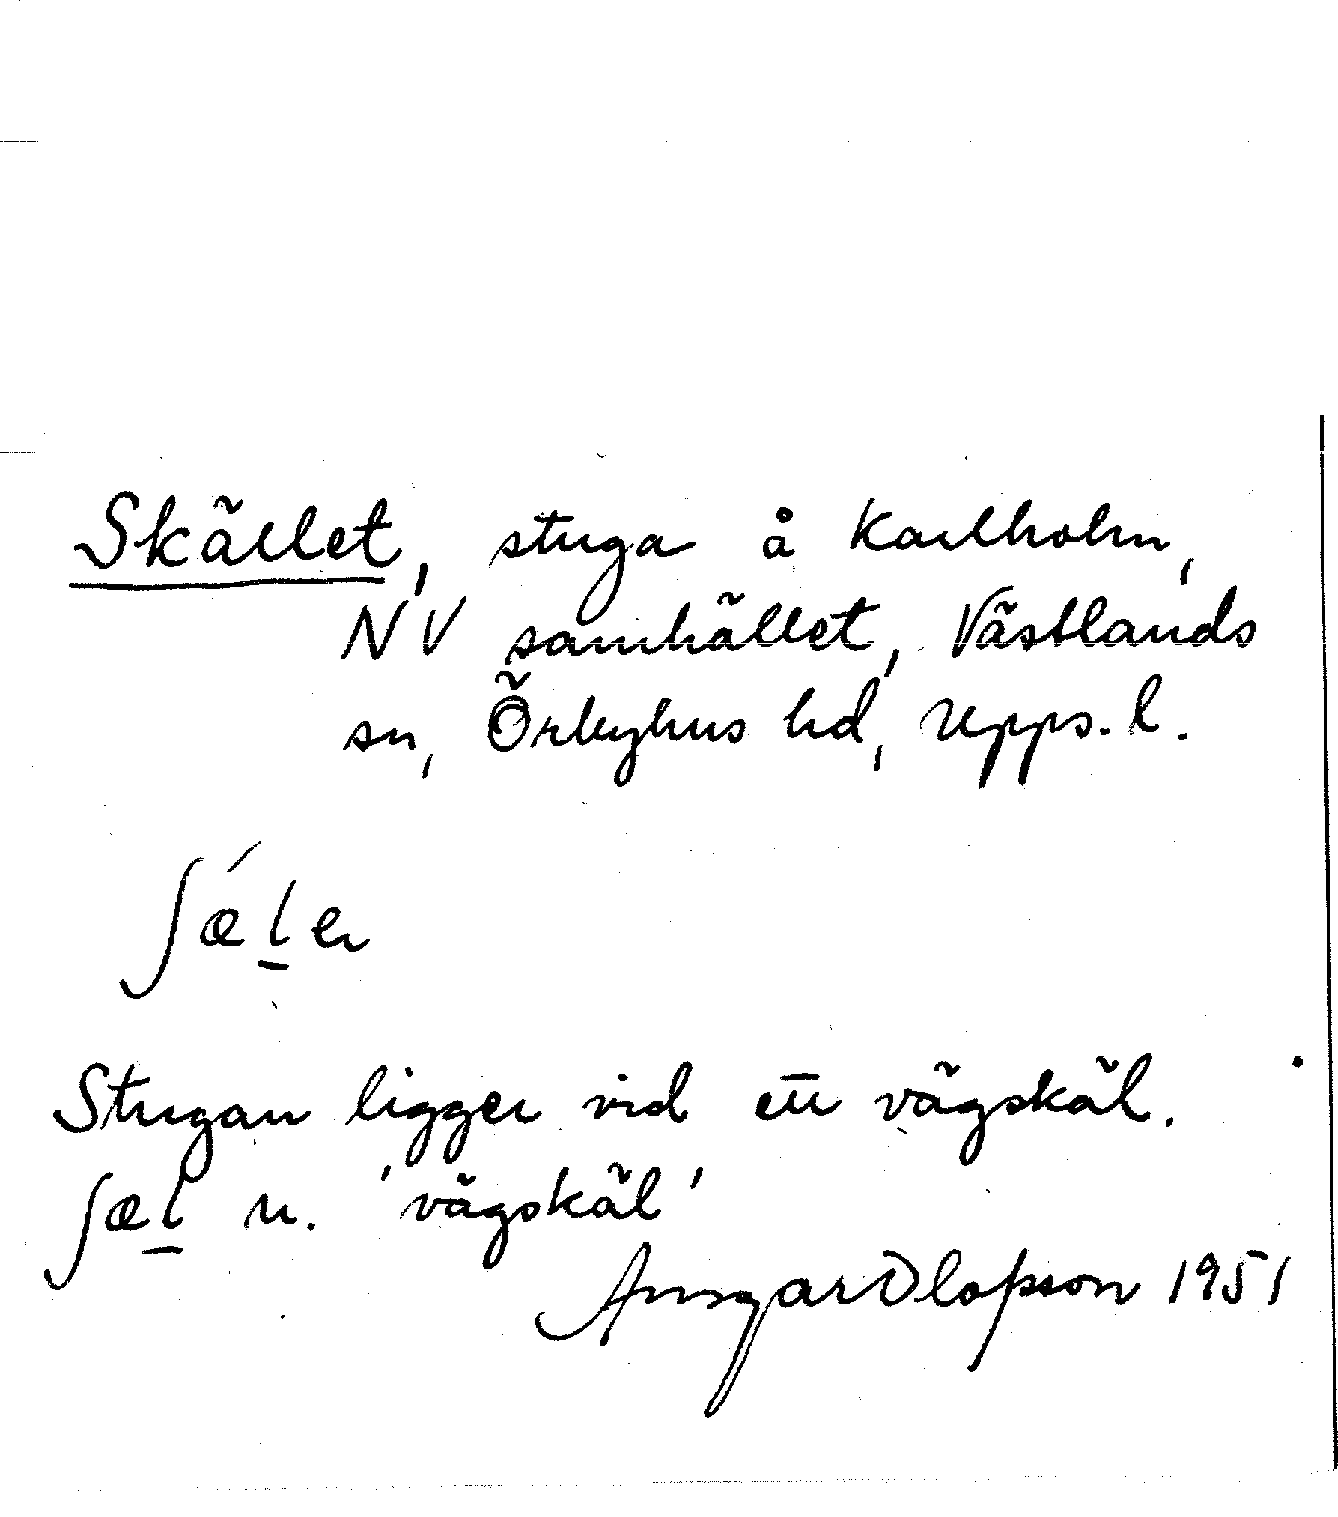 Skället, stuga å Karlholm,
NV samhället, Västlands
sn, Örbyhus hd, Upps. l.
ʃǽl̲er
Stugan ligger vid ett vägskäl.
ʃæl̲ n. 'vägskäl'
Ansgar Olofsson 1951